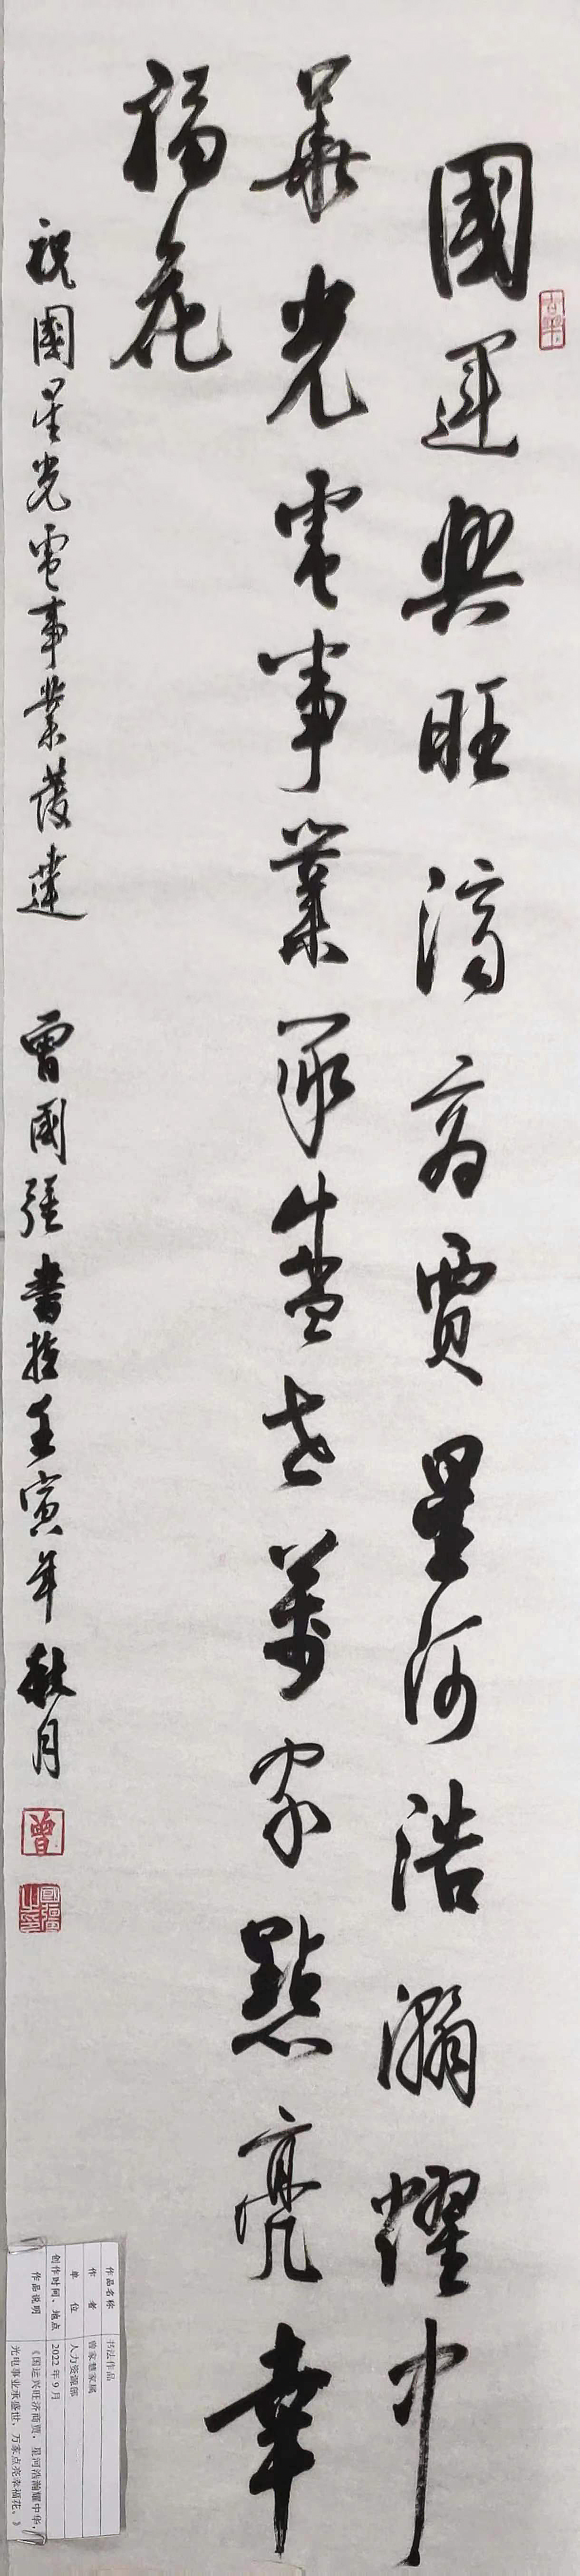 國運興旺濟商賈星河浩瀚耀中
華光電事業承盛世萬家點亮幸
福花
祝國星光電事業發達 曾國強書於壬寅年秋月
曾
作品名称 书法作品
作者 曾家慧家属
单位 人力资源部
创作时间、地点 2022年9月
作品说明 《国运兴旺济商贾，星河浩瀚耀中华，
光电事业承盛世，万家点亮幸福花。》